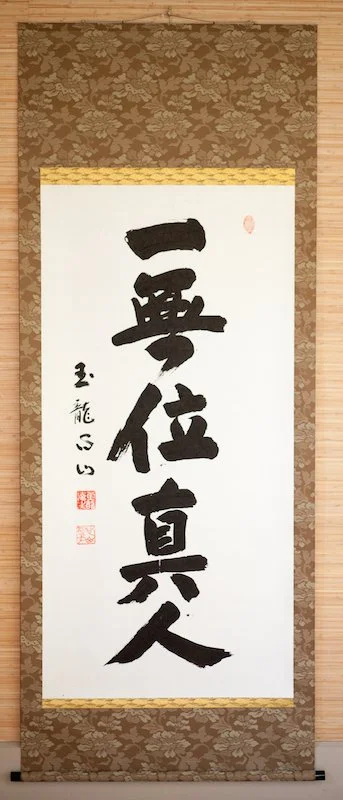 一無位真人
玉龍